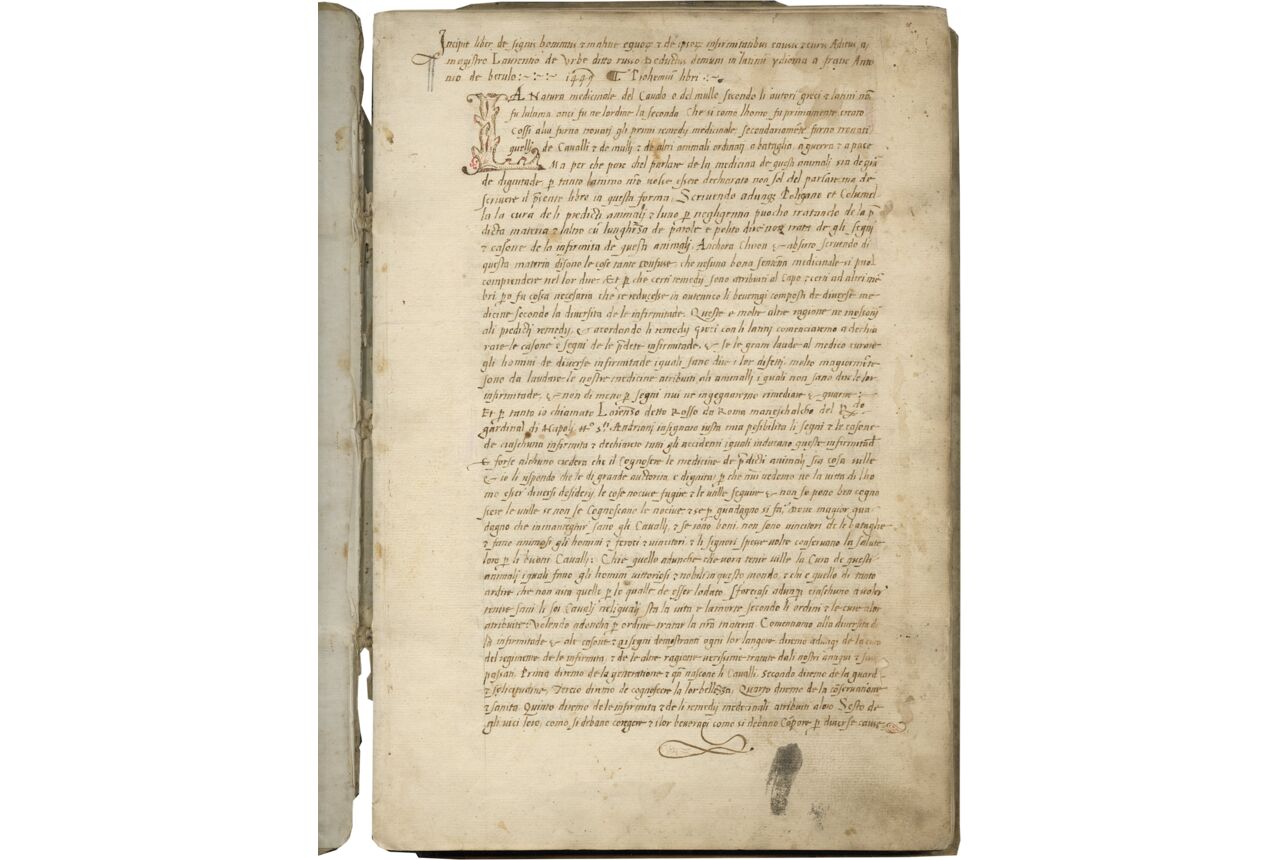 Incipit liber de signis bonitatis & malitie equoꝝ & de ipsoꝝ infirmitatibus causis & cura Aditus, a
magistro Laurentio de Urbe ditto russo Reductus demum in latinũ ydioma a fratre Anto
nio de berulo: 1449 ¶ Prohemiũ libri
LA Natura medicinale del Cavalo o del mullo secondo li autori greci & latini nõ
fu lultima anci fu ne lordine la seconda Che si como lhomo fu primamente creato
Cossi alui furno trovati gli primi remedij medicinale, secondariamẽte furno trovati
quelli de Cavalli & de mulli & de altri animali ordinati a bataglia, a guerra & a pace
Ma per che pare chel parlare de la medicina de questi animali sia de grã
de dignitade p̱ tanto lanimo nr̃o volse essere dechiarato non sol del parlare ma de
scrivere il p̃sente libro in questa forma. Scrivendo adunqꝫ Peligano et Columel
la la cura de li predicti animali & luno p̱ negligentia puocho tratando de la p̃
dicta materia & laltro cũ lunghezza de parole e polito dire non trata de gli segni
& casone de la infirmita de questi animali. Anchora Chiron & absirto scrivendo di
questa materia disono le cose tante confuse, che nesuna bona sentẽtia medicinale si puol
comprendere nel lor dire. Et p̱ che certi remedij sono atributi al Capo & certi ad altri mẽ
bri p̱o fu cossa necesaria che se reducesse in autentico li beveragi composti de diverse me
dicine secondo la diversita de le infirmitade. Queste e molte altre ragione ne mossoni
ali predicti remedij, & acordando li remedij greci con li latini comenciaremo a dechia
rare le casone e segni de le p̃dete infirmitade. & se le gram laude al medico curare
gli homini de diverse infirmitade iquali sano dire i lor difetti, molto magiormẽte
sono da laudare le nostre medicine atributi ali animalli i quali non sano dire le lor
infirmitade, & non di meno p̱ segni nui ne ingegnaremo rimediare & guarire.
Et p̱ tanto io chiamato Lorenzo detto Rosso da Roma mareschalcho del R.do
gardinal di Napoli Andriani insignaro iusta mia posibilita li segni & le casone
de ciaschuna infirmita & dechiarero tutti gli accidenti iquali inducano queste infirmitad
E forse alchuno credera che il Cognosere le medicine de p̃dicti animali sia cosa ville
& io li rispondo che le di grande auctorita e dignita, p̱ che nui vedemo ne la vitta di lho
mo esser diversi desiderij, le cose nocive fugire & le utille seguire & non so pono ben cogno
scere le utille se non se Cognoscano le nocive, & se p̱ guadagno si fa, dove magior gua
dagno che in mantegnir sano gli Cavalli, & se sono boni, non sono vincitori de le bataglie
& fano animosi gli homini & feroci & vincitori, & li signori spesse volte conservano la salute
loro p̱ li buoni Cavalli: Chi e quello adunche che vora tenir ville la Cura de questi
animali iquali fano gli homini vittoriosi & nobili in questo mondo, & chi e quello di tanto
ardire che non ava quelle p̱ le qualle de esser lodato. Sforciasi adunqꝫ ciaschuno a voler
tenire sani li soi Cavalli neliquali sta la vita e la morte secondo li ordini & le cure alor
atribuite: Volendo adoncha p̱ ordine tratar la nr̃a materia. Comentiamo alla diversita de
la infirmitade & ale casone & ai segni demostranti ogni lor langore diremo adunqꝫ de la cura
del regimento de le infirmita, & de le altre ragione verissime tratate dali nostri antiqui & sau
passati. Prima diremo de la generatione & q̃n nascono li Cavalli, Secondo diremo de la guard
& solicitudine, Tercio diremo de cognosere la lor bellezza, Quarto diremo de la cõservatione
& sanita, Quinto diremo de le infirmita & de li remedij medicinali atributi aloro. Sesto de
gli vici loro, como si debano coregere & i lor beveragi como si debano Cõpore p̱ diverse cause